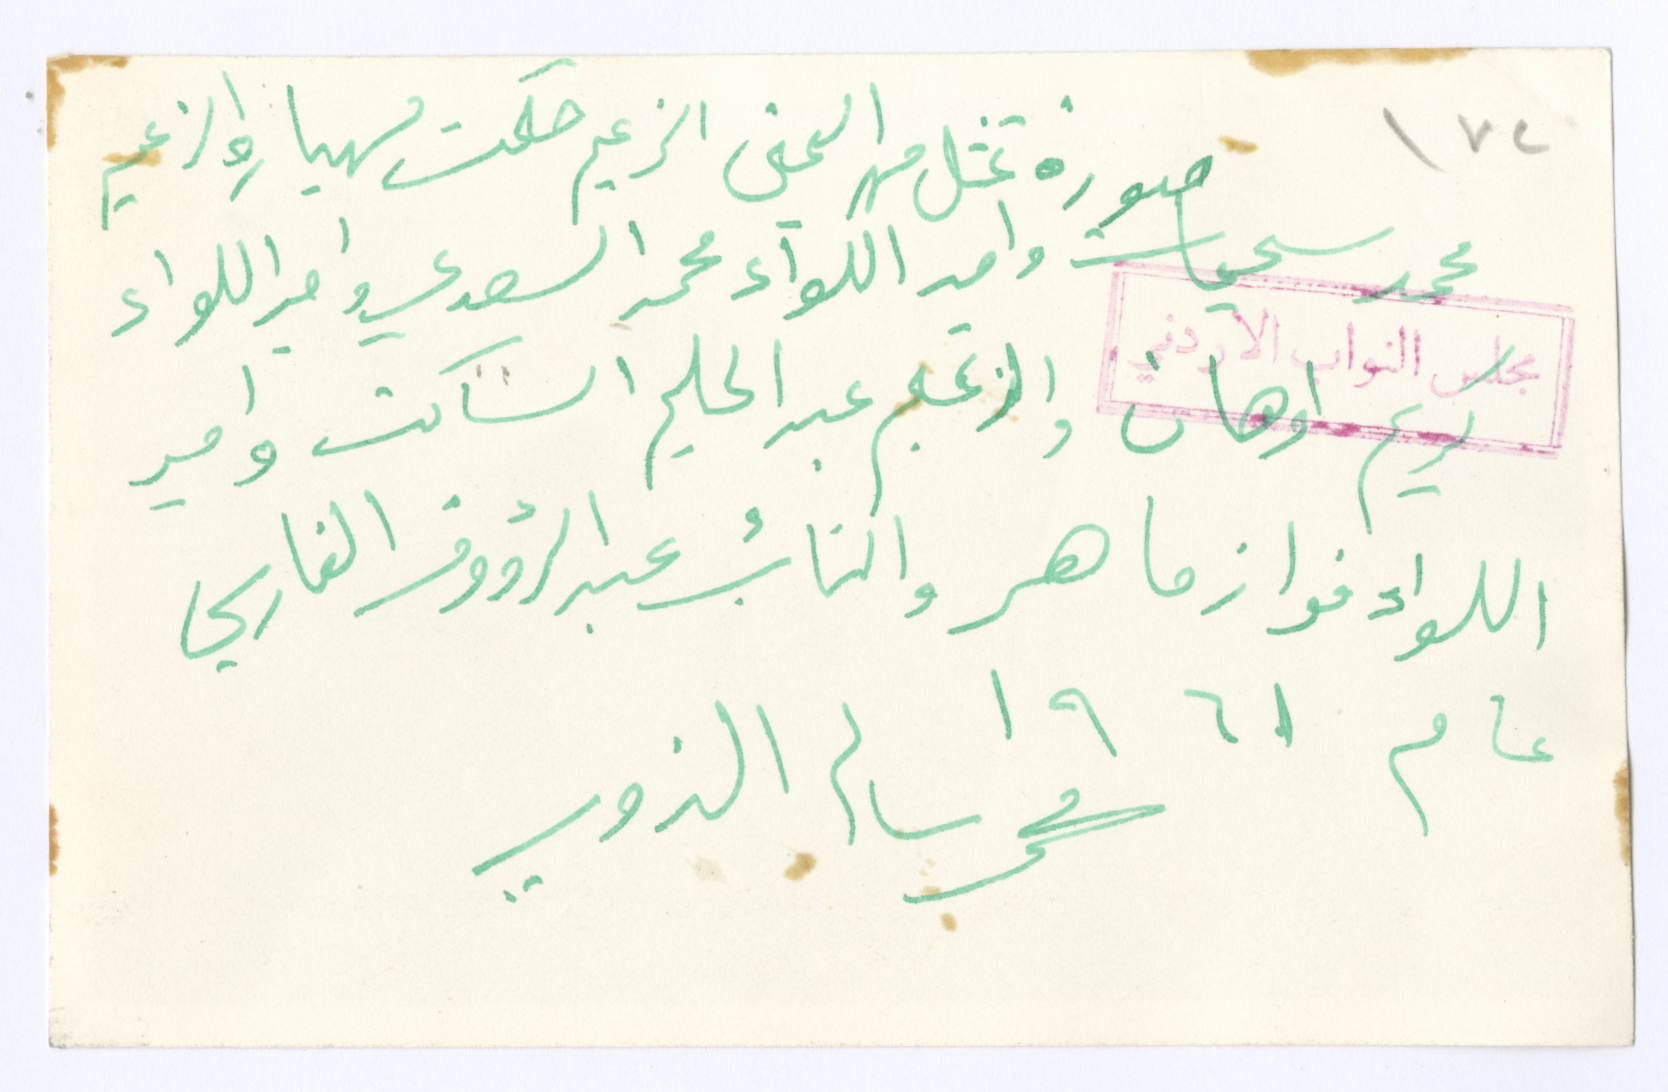 ١٧٤
صورة تمثل من اليمنى الزعيم حكمت مهيار والزعيم
محمد سحيمات وامير اللواء محمد السعدي وامير اللواء
مجلس النواب الأردني
كريم اوهان والزعيم عبد الحليم الساكت وامير
اللواء فواز ماهر والنائب عبد الرؤوف الفارس
عام ١٩٦١
سالم الذويب